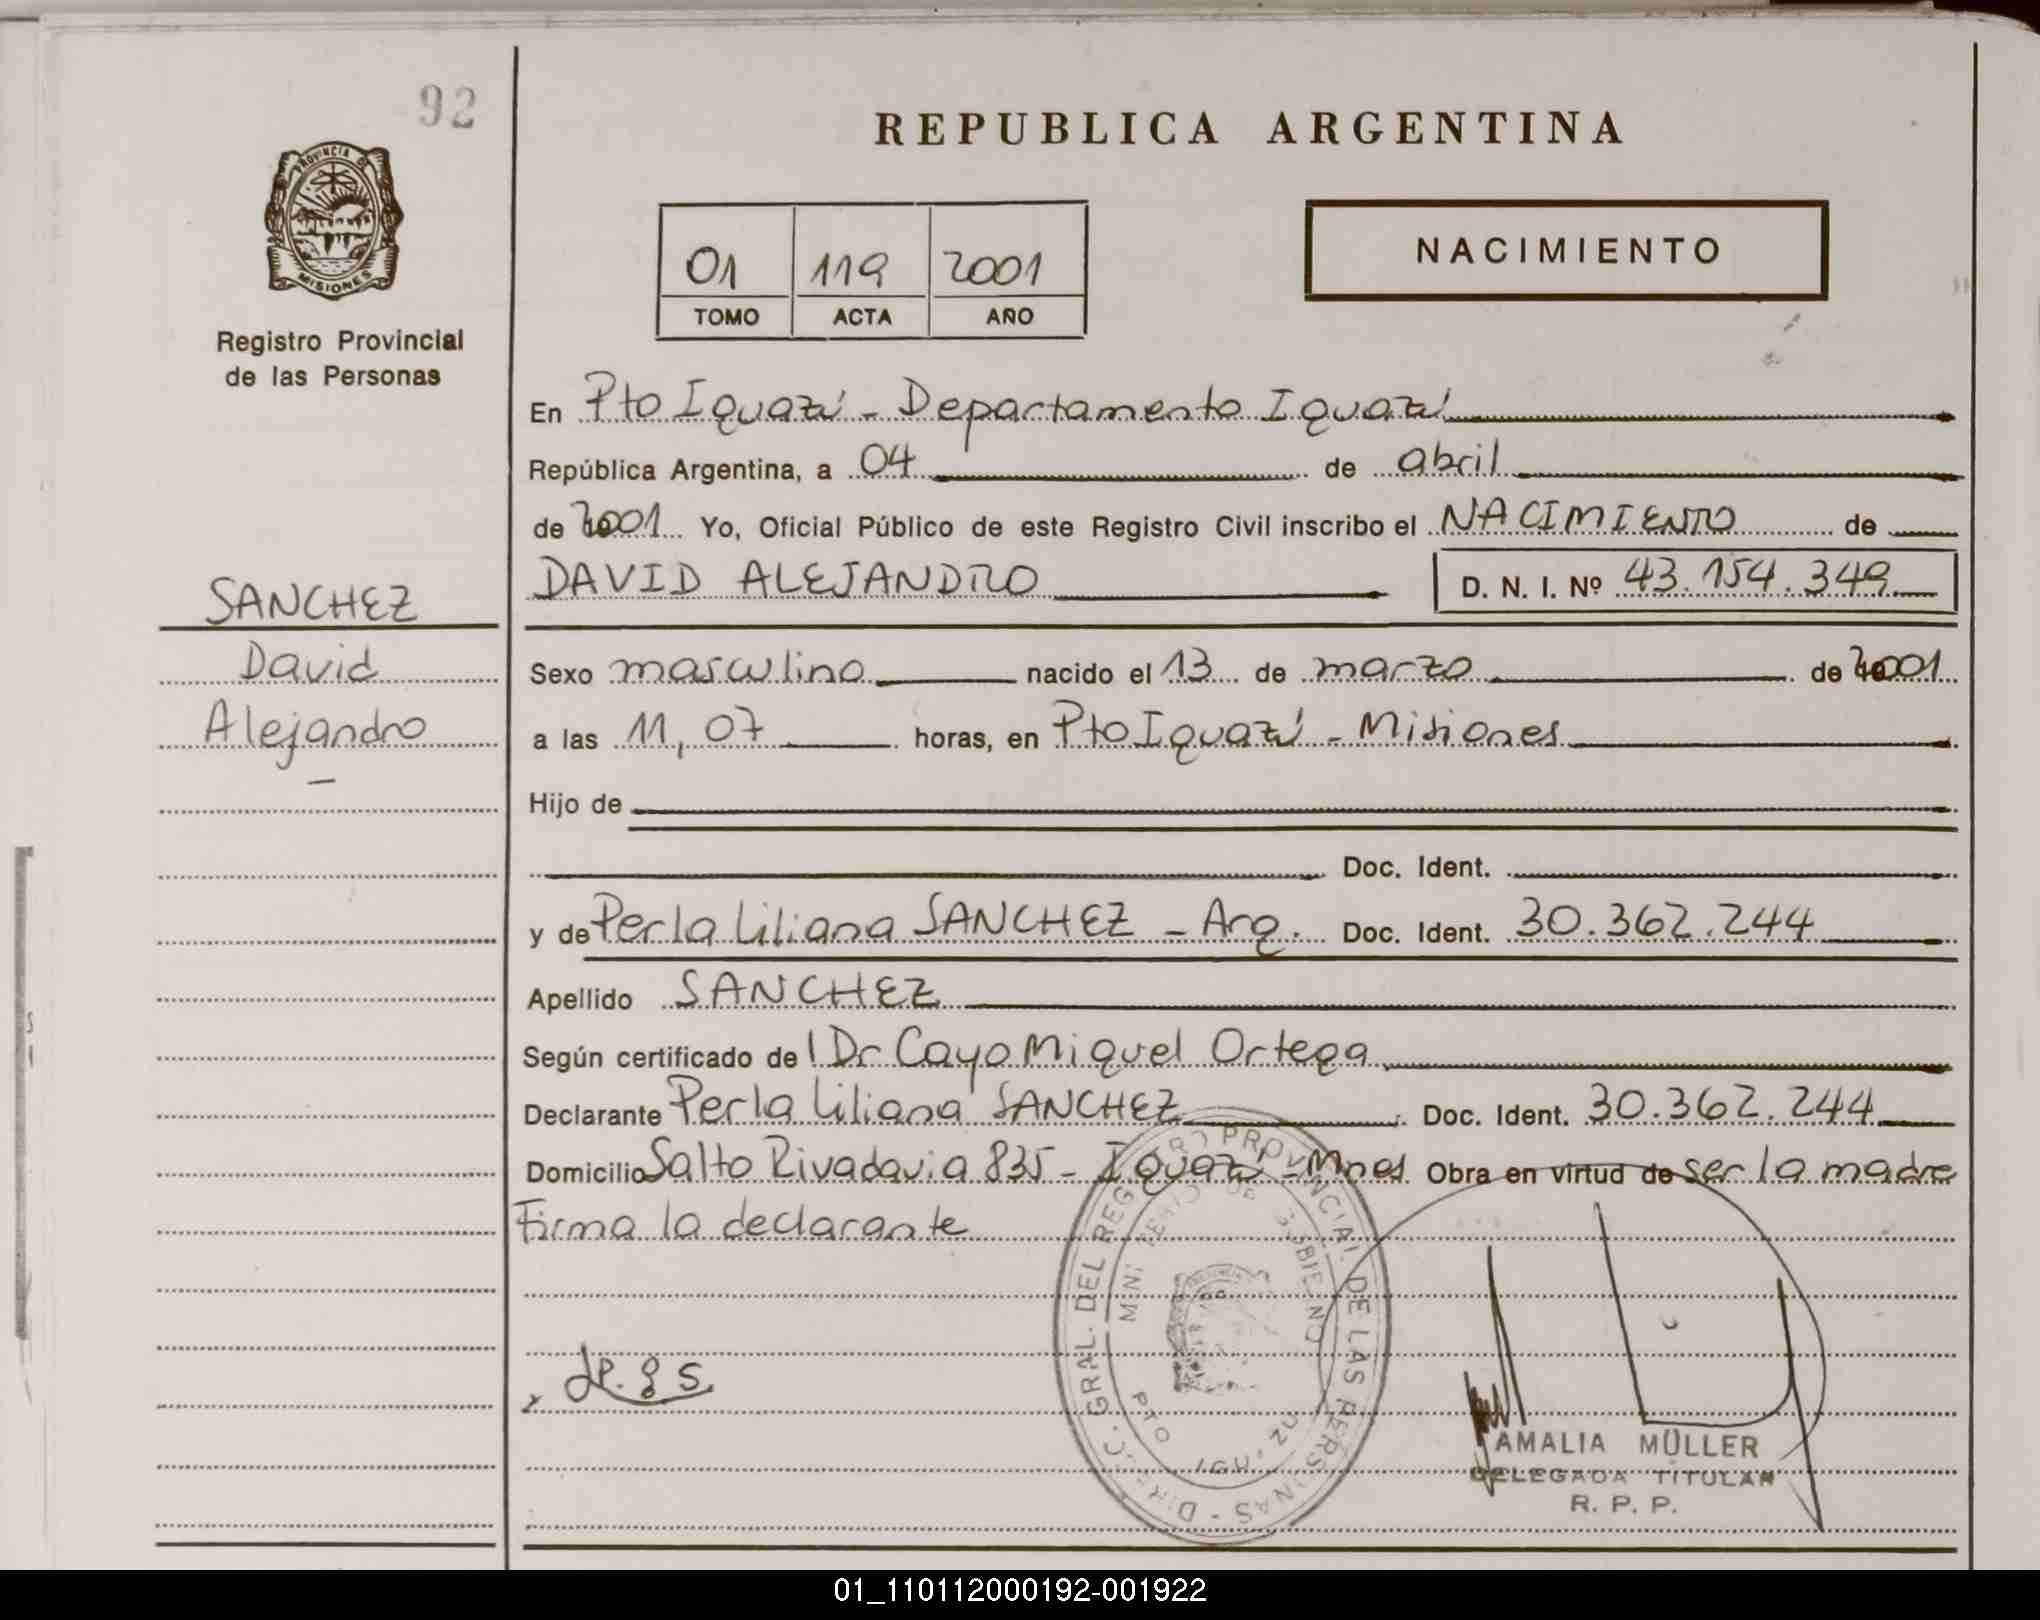 92
REPUBLICA ARGENTINA
PROVINCIA DE
MISIONES
Registro Provincial
de las Personas
01 119 2001
TOMO ACTA AÑO
NACIMIENTO
En Pto Iguazú - Departamento Iguazú
República Argentina, a 04 de abril
de 2001 Yo, Oficial Público de este Registro Civil inscribo el NACIMIENTO de
DAVID ALEJANDRO D. N. I. Nº 43.154.349
SANCHEZ
David
Alejandro
Sexo masculino nacido el 13 de marzo de 2001
a las 11,07 horas, en Pto Iguazú - Misiones
Hijo de
Doc. Ident.
y de Perla Liliana SANCHEZ - Arg. Doc. Ident. 30.362.244
Apellido SANCHEZ
Según certificado del Dr Cayo Miguel Ortega
Declarante Perla Liliana SANCHEZ Doc. Ident. 30.362.244
Domicilio Salto Rivadavia 835 - Iguazú - Mnes Obra en virtud de ser la madre
Firma la declarante
DIRECC. GRAL. DEL REGISTRO PROVINCIAL DE LAS PERSONAS
MINISTERIO DE GOBIERNO
PTO IGUAZU
AMALIA MÜLLER
DELEGADA TITULAR
R. P. P.
01_110112000192-001922